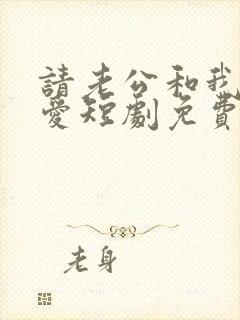 請老公和我
愛短劇免費
老身